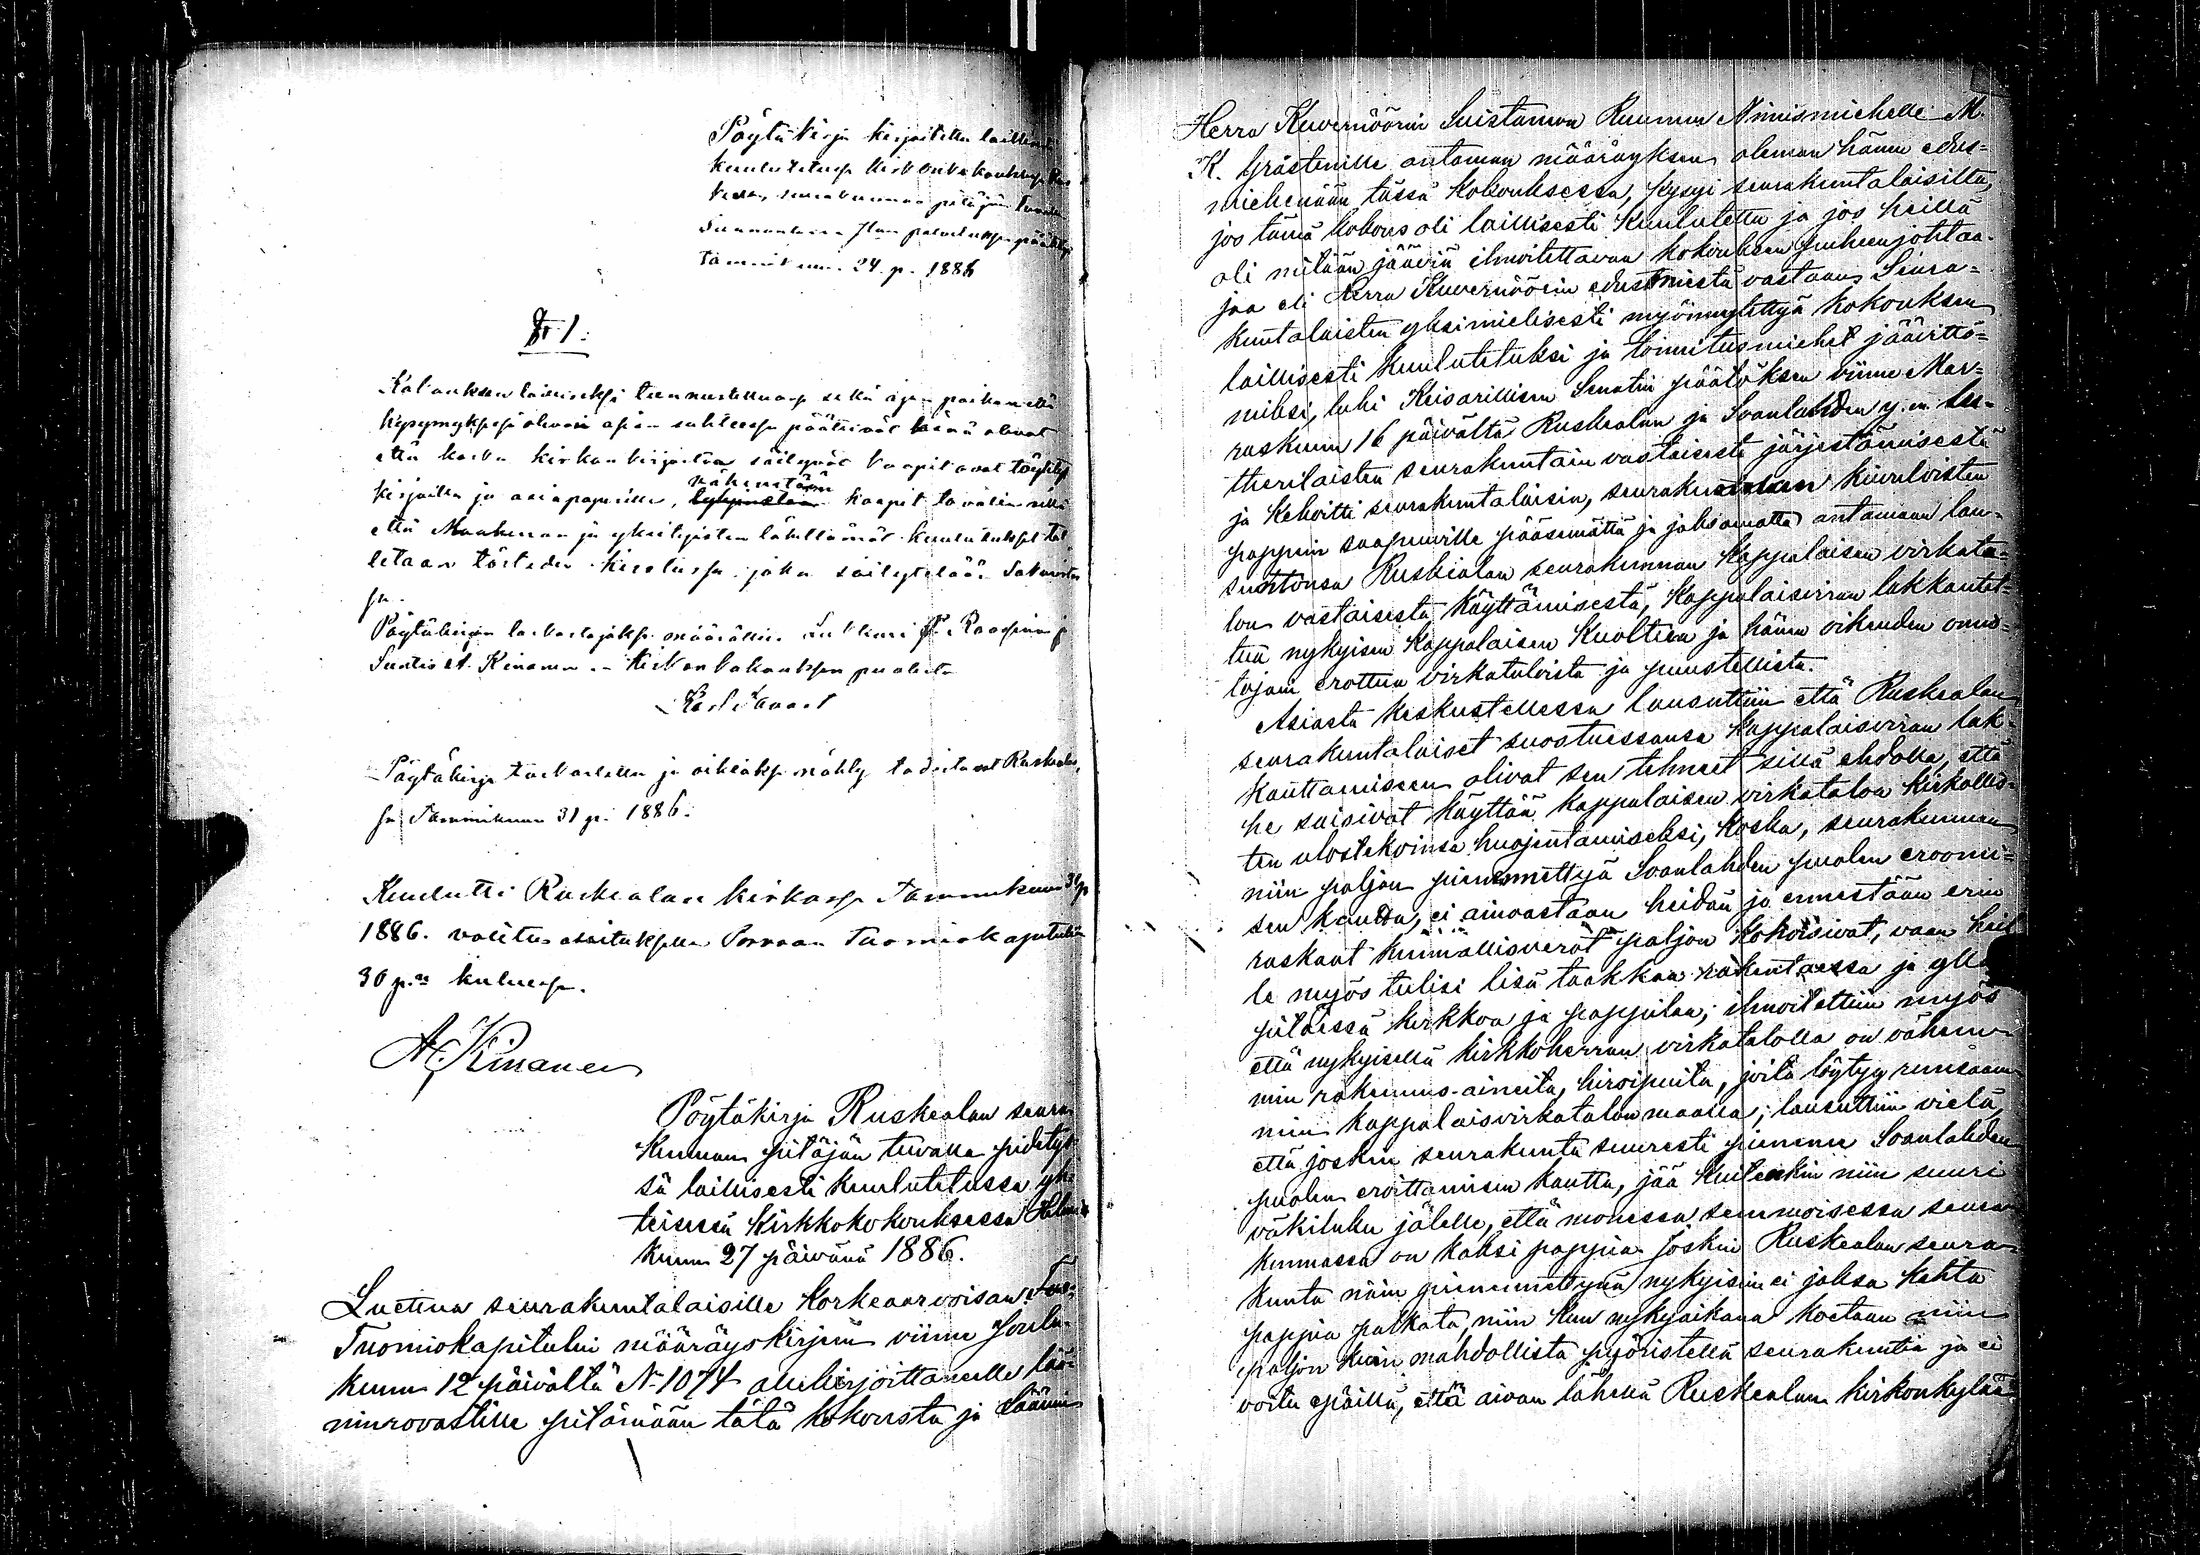 Pöytäkirja kirjoitettu laillisesti
kuulutetussa kirkonkokouksessa Rus
kealan, seurakunnan pitäjän tuvalla
Sunnuntaina Jumalan palveluksen päätettyä
Tammikuun 24 p. 1886
§ 1:
Kokouksen lailliseksi tunnustettua sekä ajan paikan että
kysymyksessä olevan asian suhteessa päättivät läsnä olevat
että koska kirkon kirjastoa säilyvät kaapit ovat täynnä
kirjoilla ja asiapapereilla,
nähnytään
kaapit
että Maaherran ja yksityisten lähettämät kuulutukset tal
letaan tästedes kirstussa, joka säilytetään Sakaristos
sa.
Pöytäkirjan tarkastajaksi määrättiin Lukkari P. Raasina ja
Suntio A. Kinanen. Kirkonkokouksen puolesta
Pöytäkirja tarkastettu ja oikeaksi nähty todistavat Ruskealas
sa Tammikuun 31 p. 1886.
Kuulutti Ruskealan kirkossa Tammikuun 31 p
1886. valitus osoituksella Porvoon Tuomiokapituliin
30 p:än kuluessa.
A. Kinanen
Pöytäkirja Ruskealan seura
kunnan pitäjän tuvalla pidetys
sä laillisesti kuulutetussa yh
teisessä Kirkkokokouksessa Helmi
kuun 27 päivänä 1886.
Luettua seurakuntalaisille Korkeaarvoisan
Tuomiokapitulin määräyskirjein viime Joulu
kuun 12 päivältä N:o 1074 allekirjoittaneelle lää
ninrovastille pitämään tätä kokousta ja Läänin
Herra Kuvernöörin Suistamon Ruunun Nimismiehelle M.
K. Gråstenille antaman määräyksen oleman hänen edus=
miehenään tässä Kokouksessa, kysyi seurakuntalaisilta,
jos tämä kokous oli laillisesti Kuulutettu ja jos heillä
oli mitään jääviä ilmoitettavaa kokouksen puheenjohtaa-
jaa eli Herra Kuvernöörin edusmiestä vastaan, Seura=
kuntalaisten yksimielisesti myönnytettyä kokouksen
laillisesti kuulutetuksi ja toimitusmiehet jäävittö=
miksi, luki Keisarillisen Senatin päätöksen viime Mar=
raskuun 16 päivältä Ruskealan ja Soanlahden y.m. Lu=
therilaisten seurakuntain vastaisesta järjestämisestä
ja Kehoitti seurakuntalaisia, seurakunnan
pappein saapuville pääsemättä ja jaksamatta antamaan lau=
suntonsa Ruskealan seurakunnan Kappalaisen virkata=
lon vastaisesta Käyttämisestä, Kappalaisviran lakkautet=
tua nykyisen Kappalaisen kuoltua ja hänen oikeuden omis=
tajain erottua virkatuloista ja puustellista.
Asiasta keskustellessa lausuttiin että Ruskealan
seurakuntalaiset suostuessansa Kappalaisviran lak=
kauttamiseen olivat sen tehneet sillä ehdolla, että
he saisivat käyttää kappalaisen virkatalon Kirkollis=
ten ulostekoinsa huojentamiseksi, koska, seurakunnan
niin paljon pienennettyä Soanlahden puolen eroomi=
sen kautta, ei ainoastaan heidän jo ennestään erin
raskaat kunnallisverot paljon kohoisivat, vaan heil
le myös tulisi lisä taakkaa rakentaessa ja yllä
pitäessä kirkkoa ja pappilaa; ilmoitettiin myös
että nykyisellä kirkkoherran virkatalolla on vähem=
min rakennus-aineita, hirsipuita, joita löytyy runsaam
min kappalaisvirkatalon maalla; lausuttiin vielä
että joskin seurakunta suuresti pienenee Soanlahden
puolen eroittamisen kautta, jää kuitenkin niin suuri
väkiluku jälelle, että monessa semmoisessa seura
kunnassa on kaksi pappia. Joskin Ruskealan seura
kunta näin pienennettynä nykyisin ei jaksa kahta
pappia palkata, niin kun nykyaikana koetaan niin
paljon kuin mahdollista pyöristellä seurakuntia ja ei
voitu epäillä, että aivan lähellä Ruskealan kirkonkylää